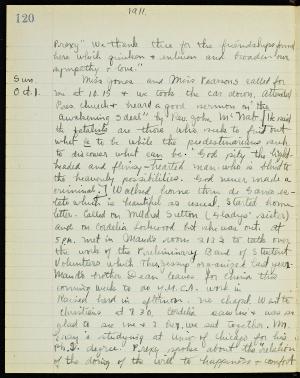 120
1911.
Prexy" We thank thee for the friendships formed
here which quicken & enliven and broaden our
sympathy & love."
Sun. Miss Jones and Miss Pearsons called for
Oct. 1. me at 10.15 & we took the car down, attended
Pres church & heard a good sermon on "the
Awakening Ideal" by Rev. John McNab. [He said
the fatalists are those who seek to find out
what is to be while the predestinarians seek
to discover what can be. God pity the
headed and flying-hearted man who is blind to
the heavenly possibilities. God never made a
criminal.] Walked home then
which is beautiful as usual. Started home
letter. Called on Mildred Sutton (Gladys' sister)
and on Cordelia Lockwood but she was out. at
5 P.M. met in Maud's room to talk over
the work of the Preliminary Band of Student
Volunteers which organized last year.
Maud's brother Dean leaves for China this
coming week to do Y.M.C.A. work in
Rained hard in afternoon. no chapel. Went to
Christians at 7.30. Cordelia saw us & was so
glad to see me & I her, we sat together. Mr.
is studying at Univ of Chicago for his
Ph.D. degree. Prexy spoke about the "relation
of the doing of the will to happiness & comfort